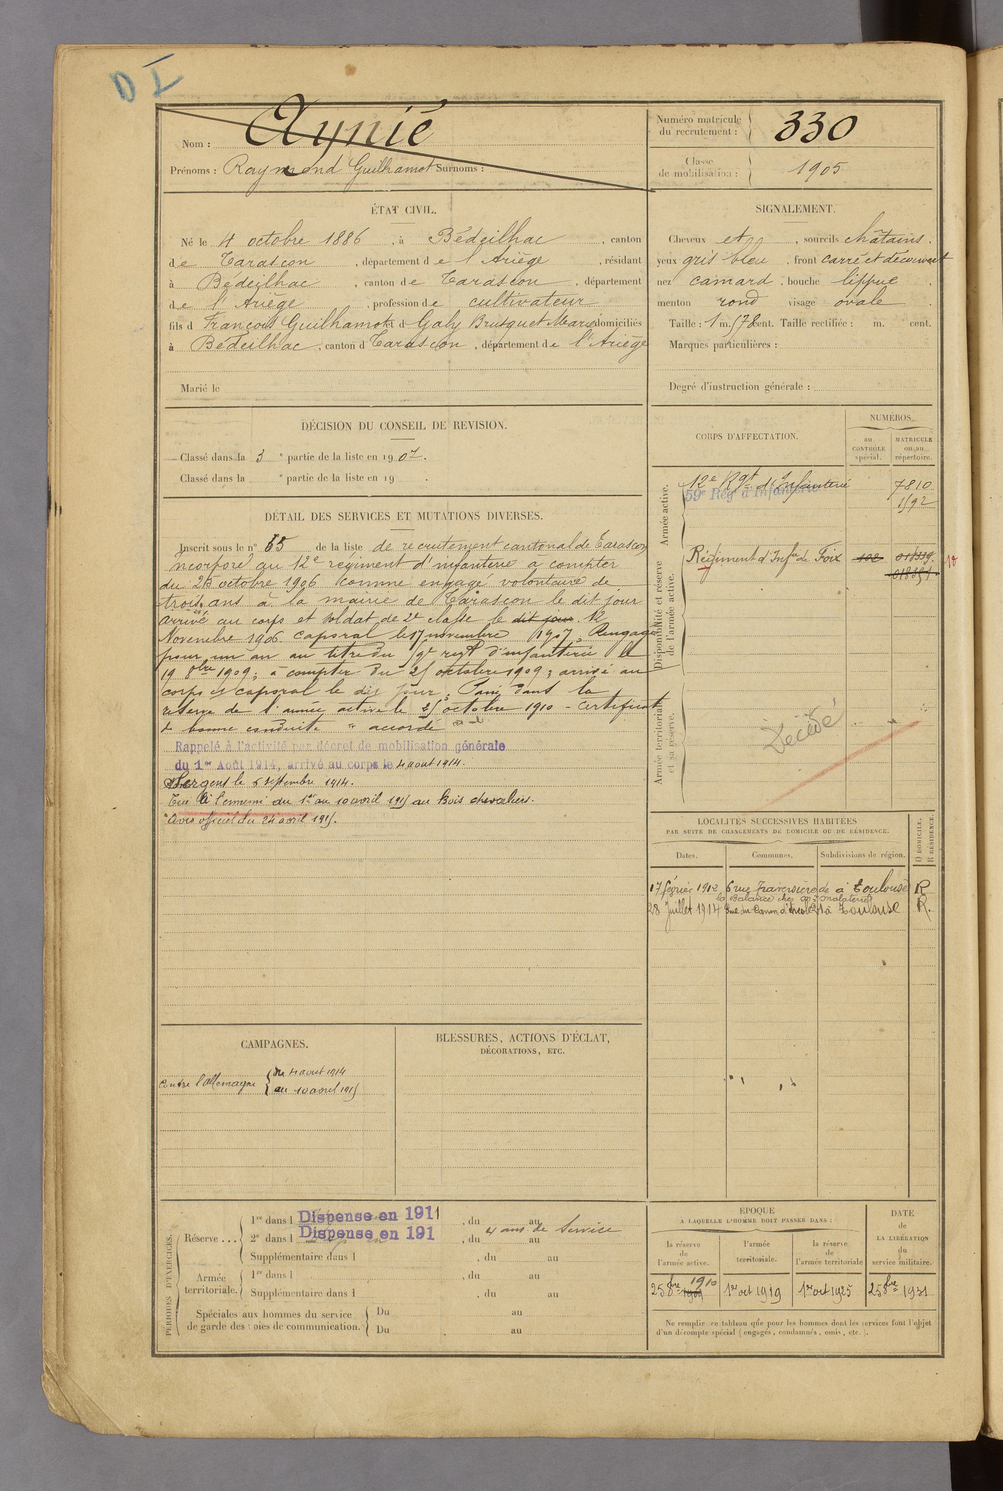 D I
Nom : Aynié
Prénoms : Raymond Guilhamot Surnoms :
Numéro matricule du recrutement : 330
Classe de mobilisation : 1905
ÉTAT CIVIL.
Né le 4 octobre 1886, à Bédeilhac, canton
de Tarascon, département de l'Ariège, résidant
à Bédeilhac, canton de Tarascon, département
de l'Ariège, profession de cultivateur
fils d François Guilhamot et d Galy Brusquet Marie domiciliés
à Bédeilhac, canton d Tarascon, département de l'Ariège
Marié le
SIGNALEMENT.
Cheveux et, sourcils châtains.
yeux gris bleu, front carré et découvert
nez camard, bouche lippue
menton rond visage ovale
Taille : 1 m. 78 cent. Taille rectifiée : m. cent.
Marques particulières :
Degré d'instruction générale :
DÉCISION DU CONSEIL DE REVISION.
Classé dans la 3e partie de la liste en 1907.
Classé dans la e partie de la liste en 19 .
DÉTAIL DES SERVICES ET MUTATIONS DIVERSES.
Inscrit sous le n° 65 de la liste de recrutement cantonal de Tarascon
incorporé au 12e régiment d'infanterie à compter
du 25 octobre 1906 comme engagé volontaire de
trois ans à la mairie de Tarascon le dit jour
arrivé au corps et soldat de 2e classe le dit jour. 12
Novembre 1906. caporal le 17 novembre 1907. Rengagé
pour un an au titre du 59e regt d'infanterie le
19 8bre 1909; à compter du 25 octobre 1909; arrivé au
corps et caporal le dit jour. Passé dans la
réserve de l'armée active le 25 octobre 1910 - Certificat
de bonne conduite " accordé "
Rappelé à l'activité par décret de mobilisation générale
du 1er Août 1914, arrivé au corps le 4 aout 1914.
Sergent le 5 septembre 1914.
Tué à l'ennemi du 1er au 10 avril 1915 au Bois chevaliers.
Avis officiel du 24 avril 1915.
CORPS D'AFFECTATION.
NUMÉROS
au CONTRÔLE spécial.
MATRICULE ou au répertoire.
Armée active.
12e Rgt d'Infanterie 7810
59e Rég d'Infanterie 1592
Disponibilité et réserve de l'armée active.
Régiment d'Infie de Foix
Armée territoriale et sa réserve.
Décédé
LOCALITÉS SUCCESSIVES HABITÉES
PAR SUITE DE CHANGEMENTS DE DOMICILE OU DE RÉSIDENCE.
Dates. Communes. Subdivisions de région. D DOMICILE. R RÉSIDENCE.
17 février 1912 6 rue Traversière de à Toulouse R
28 Juillet 1914 à Toulouse R.
CAMPAGNES.
contre l'allemagne du 4 aout 1914
au 10 avril 1915
BLESSURES, ACTIONS D'ÉCLAT,
DÉCORATIONS, ETC.
PÉRIODES D'EXERCICES.
Réserve ... 1re dans l Dispense en 1911, du au
2e dans l Dispense en 191, du 4 ans de Service au
Supplémentaire dans l , du au
Armée territoriale. 1re dans l , du au
Supplémentaire dans l , du au
Spéciales aux hommes du service de garde des voies de communication. Du au
Du au
ÉPOQUE
A LAQUELLE L'HOMME DOIT PASSER DANS :
DATE de LA LIBÉRATION du service militaire.
la réserve de l'armée active. l'armée territoriale. la réserve de l'armée territoriale
25 8bre 1909 1910 1er oct 1919 1er oct 1925 25 8bre 1931
Ne remplir ce tableau que pour les hommes dont les services font l'objet
d'un décompte spécial (engagés, condamnés, omis, etc.).